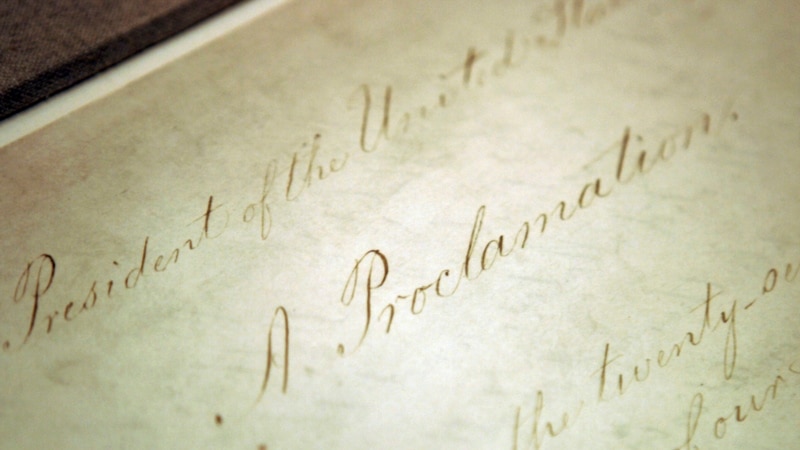 President of the United
A Proclamation.
the twenty-